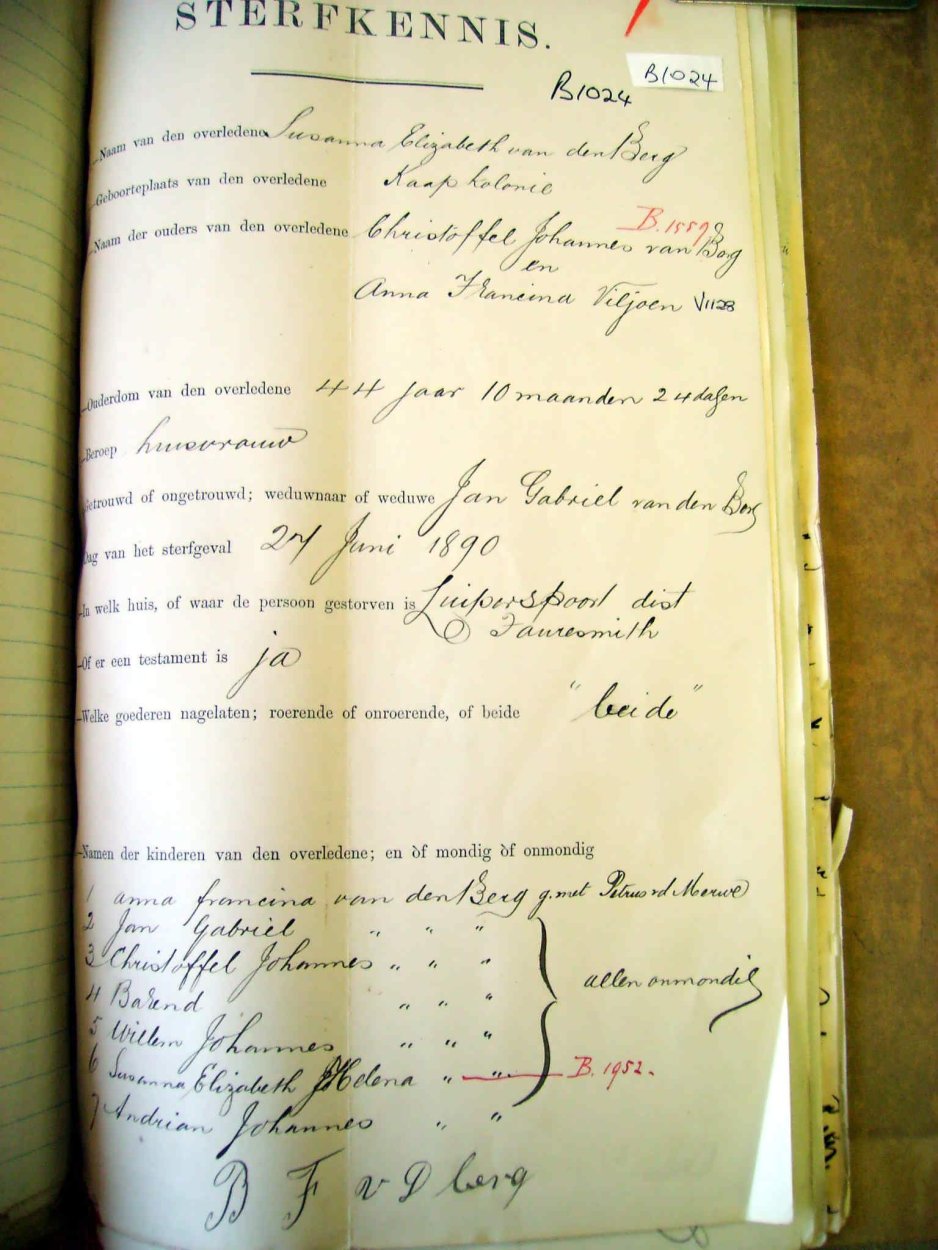 STERFKENNIS.
B1024 B1024
Naam van den overledene Susanna Elizabeth van den Berg
Geboorteplaats van den overledene Kaap Kolonie
B.1559
Naam der ouders van den overledene Christoffel Johannes van Berg
en
Anna Francina Viljoen V1128
Ouderdom van den overledene 44 jaar 10 maanden 24 dagen
Beroep huisvrouw
Getrouwd of ongetrouwd; weduwnaar of weduwe Jan Gabriel van den Berg
Dag van het sterfgeval 27 Juni 1890
In welk huis, of waar de persoon gestorven is Luipersfoort dist
Fauresmith
Of er een testament is ja
Welke goederen nagelaten; roerende of onroerende, of beide "beide"
Namen der kinderen van den overledene; en òf mondig òf onmondig
1 anna francina van den Berg g. met Petrus vd Merwe
2 Jan Gabriel " " "
3 Christoffel Johannes " " "
allen onmondig
4 Barend " " "
5 Willem Johannes " " "
6 Susanna Elizabeth Helena " " B.1952.
7 Andrian Johannes " "
B F v D berg